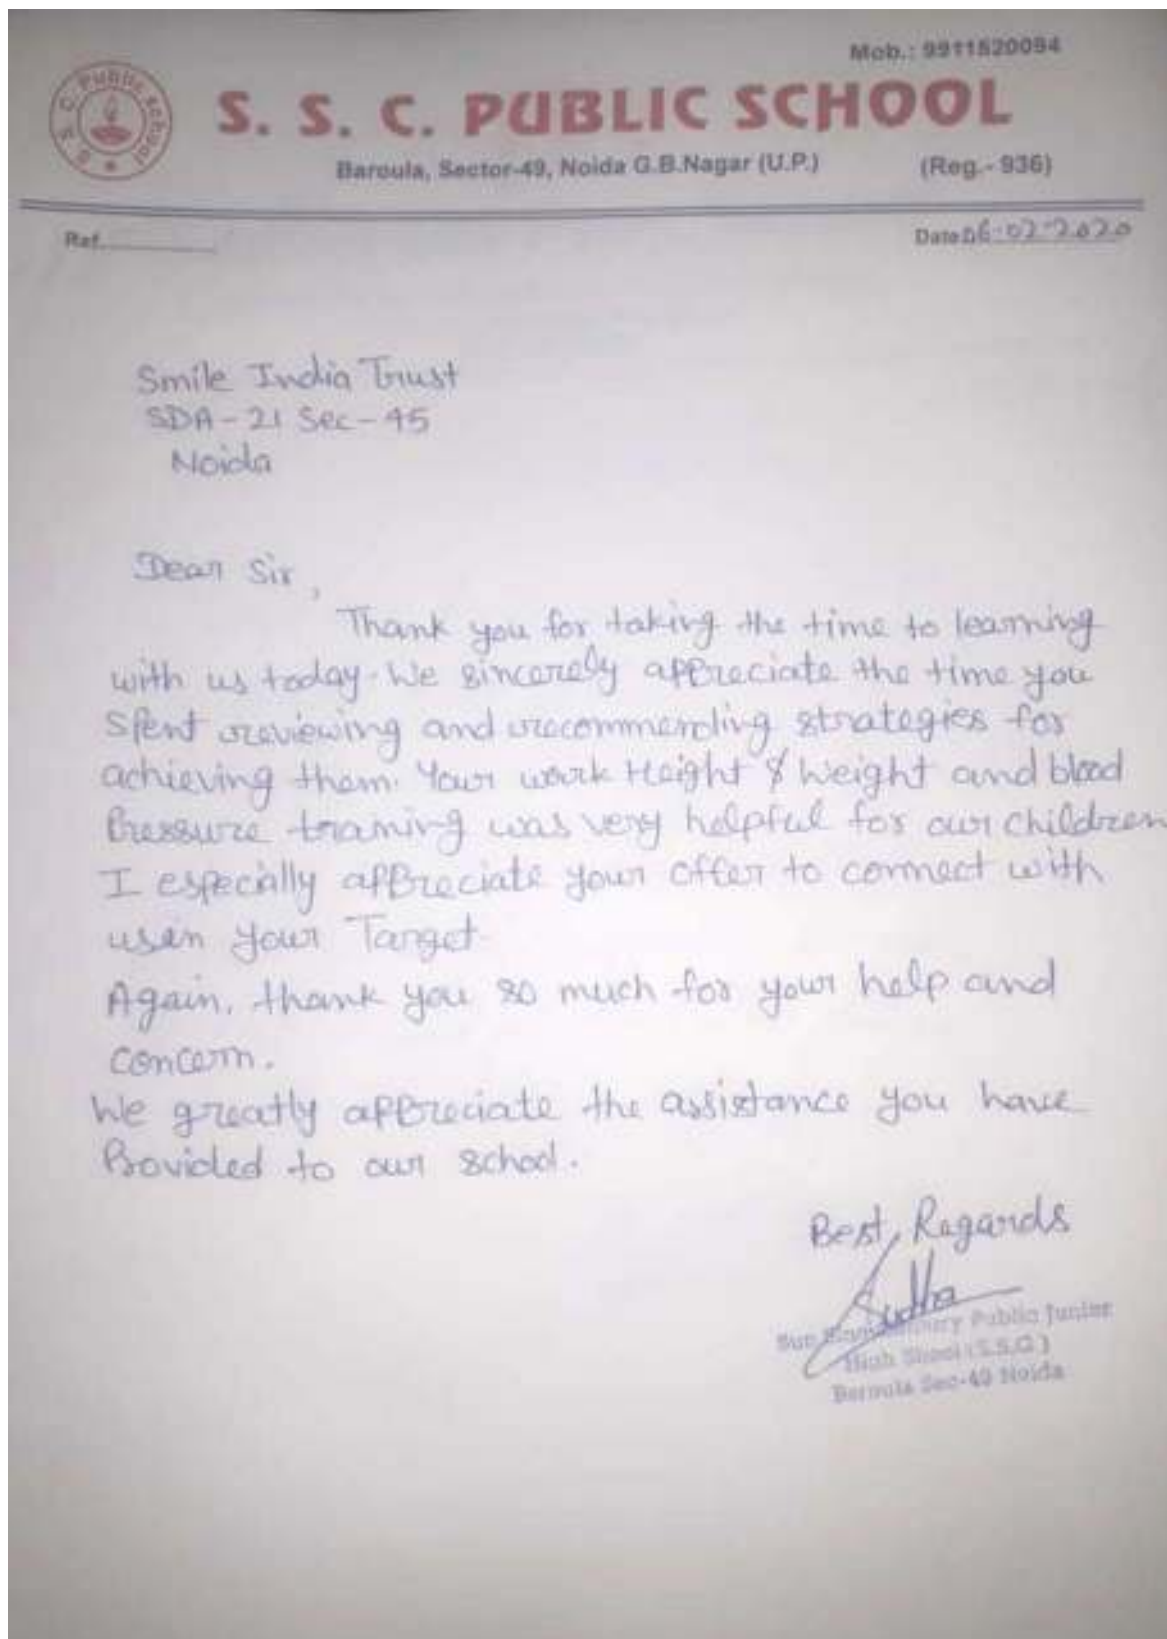 Mob.: 9911520094
S. S. C. Public School
S. S. C. PUBLIC SCHOOL
Baroula, Sector-49, Noida G.B.Nagar (U.P.) (Reg.- 936)
Ref. Date 06-02-2020
Smile India Trust
SDA-21 Sec-45
Noida
Dear Sir,
Thank you for taking the time to learning
with us today. We sincerely appreciate the time you
Spent reviewing and recommending strategies for
achieving them. Your work Height & Weight and blood
Pressure traning was very helpful for our children
I especially appreciate your offer to connect with
usin your Target
Again, thank you so much for your help and
concern.
We greatly appreciate the assistance you have
Provided to our school.
Best, Regards
Sudha
Public Junior
High Shool (S.S.C)
Baroula Sec-49 Noida